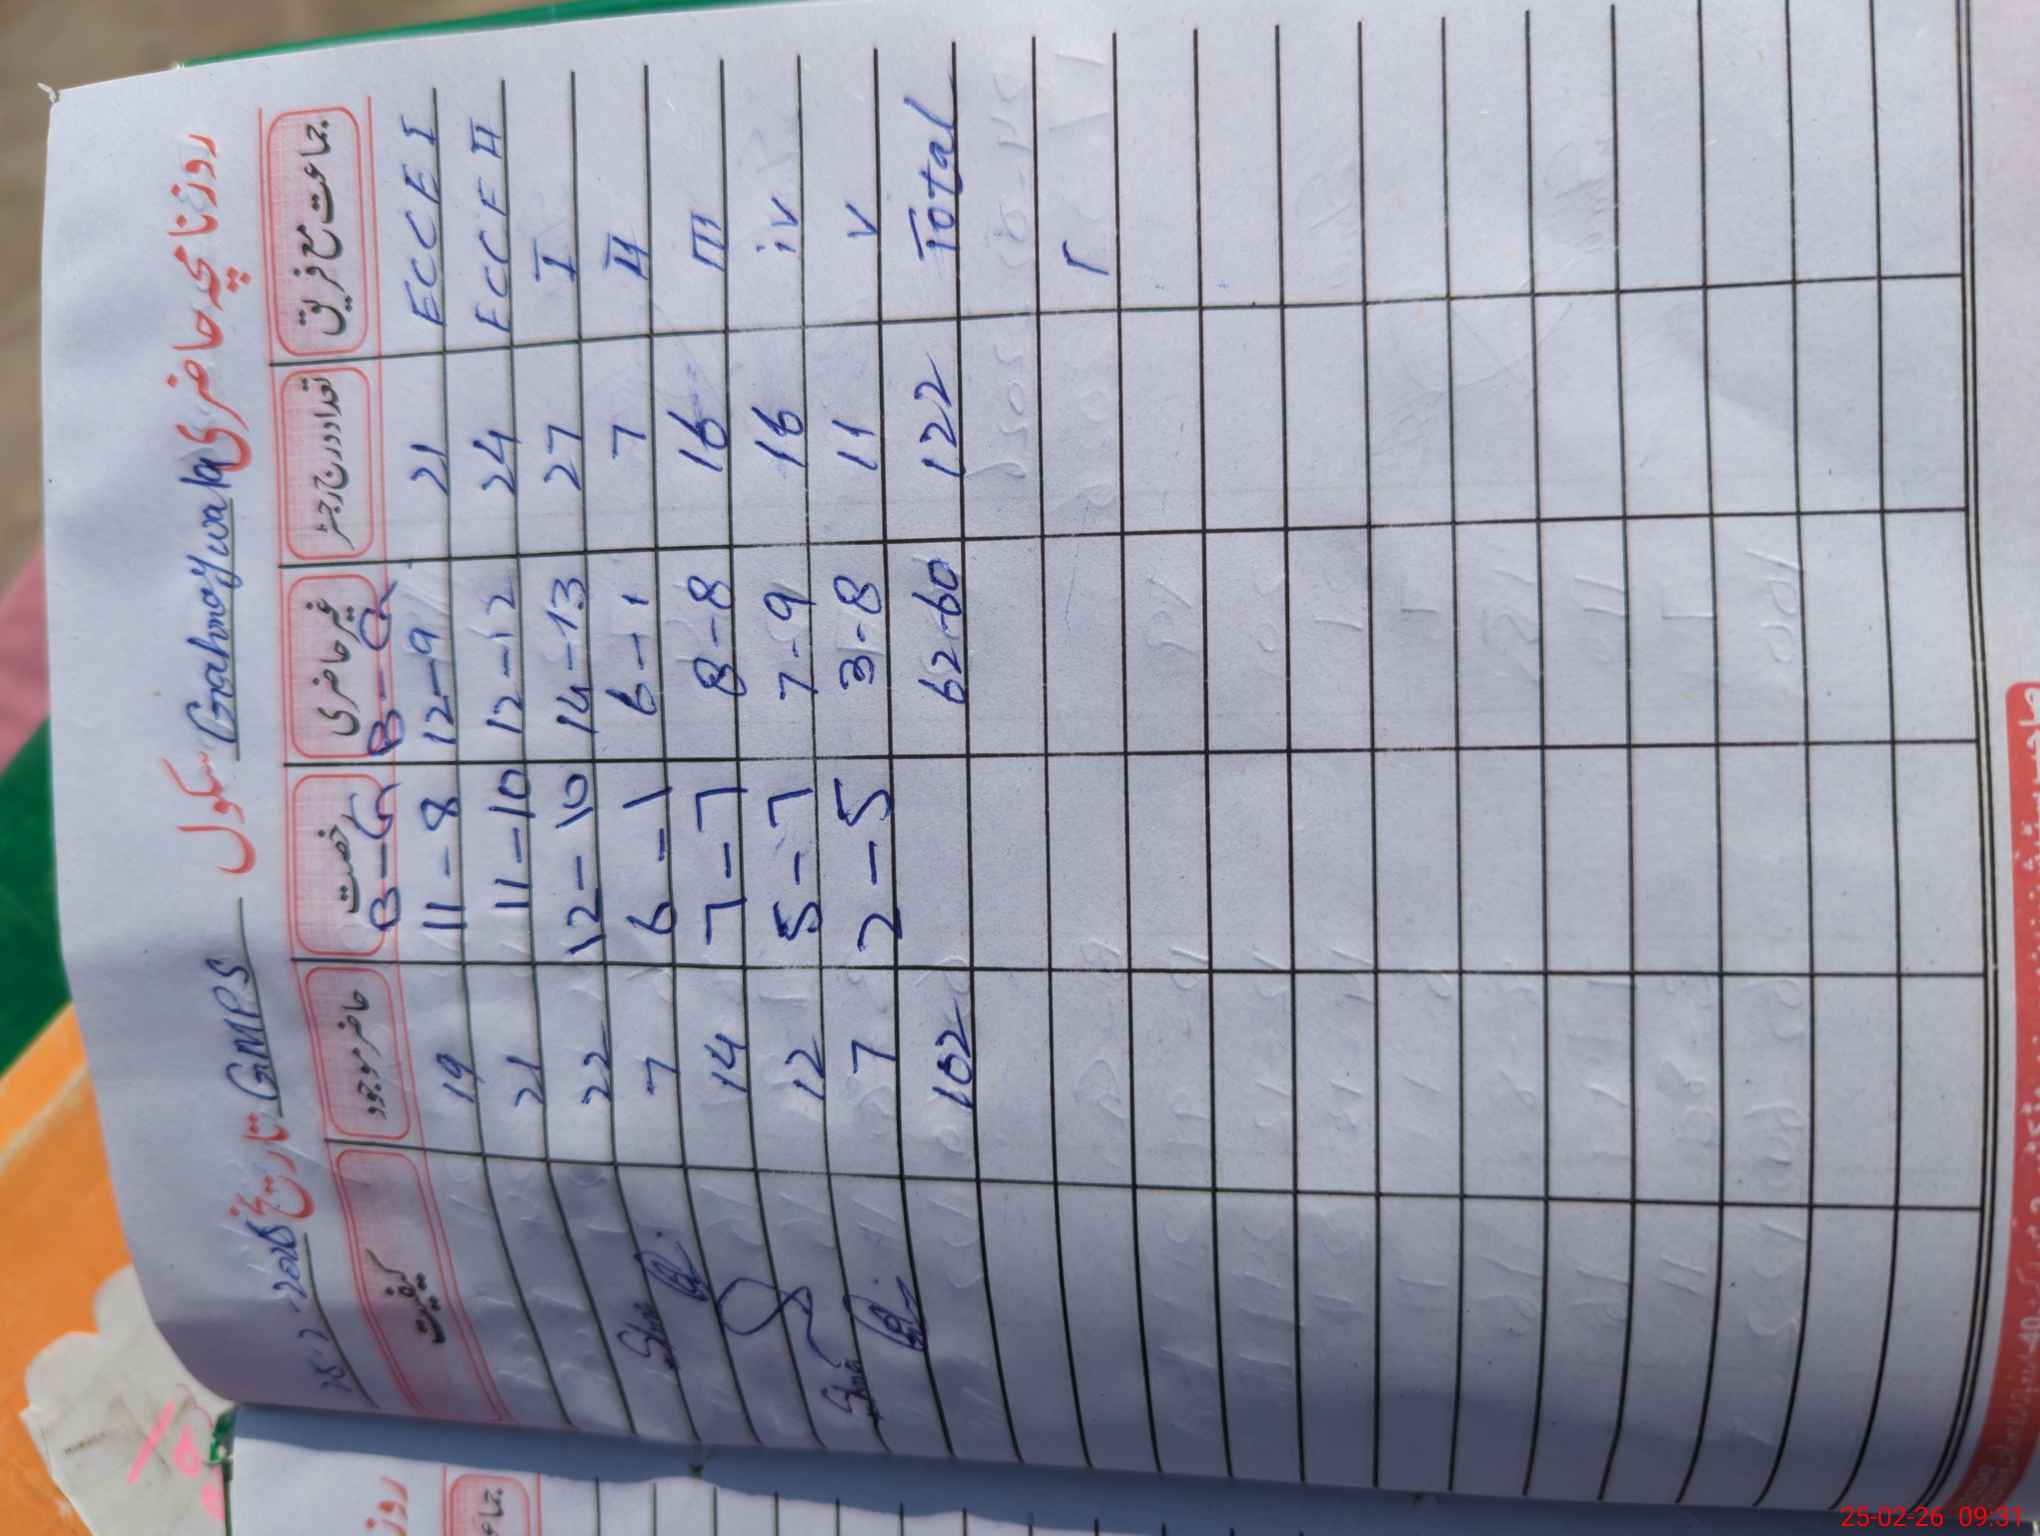 روزنامچہ حاضری Gahnoywala سکول GMPS تاریخ
جماعت مع فریق تعداد درج رجسٹر غیر حاضری رخصت حاضر موجود کیفیت
B-G B-G
ECCE I 21 12-9 11-8 19
ECCE II 24 12-12 11-10 21
I 27 14-13 12-10 22
II 7 6-1 6-1 7
III 16 8-8 7-7 14
iv 16 7-9 5-7 12
v 11 3-8 2-5 7
Total 122 62-60 102
25-02-26 09:31